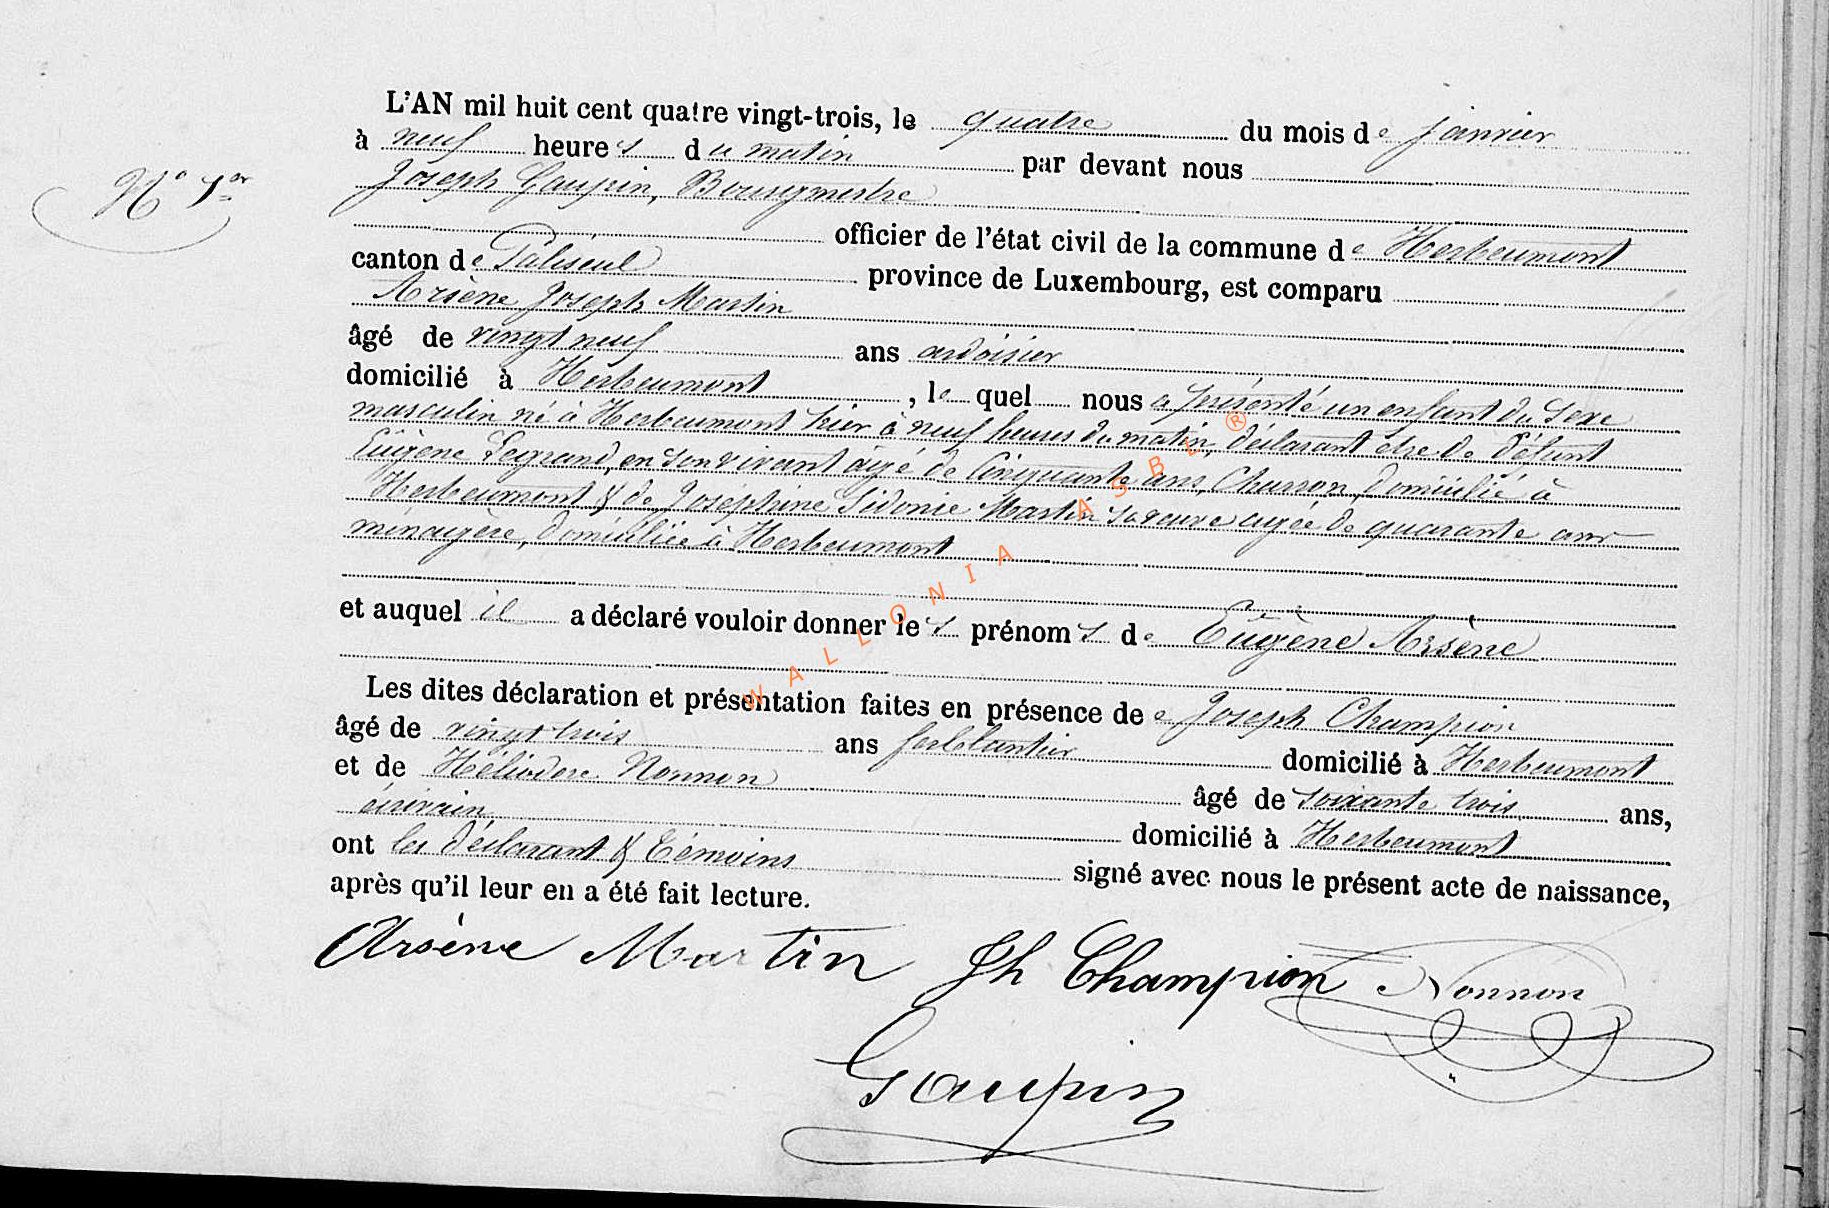 N° 1er
L'AN mil huit cent quatre vingt-trois, le quatre du mois de janvier
à neuf heures du matin par devant nous
Joseph Gaupin, Bourgmestre
officier de l'état civil de la commune de Herbeumont
canton de Paliseul province de Luxembourg, est comparu
Arsène Joseph Martin
âgé de vingt neuf ans ardoisier
domicilié à Herbeumont, lequel nous a présenté un enfant du sexe
masculin né à Herbeumont hier à neuf heures du matin, déclarant être de défunt
Eugène Legrand, en son vivant âgé de Cinquante ans, Charron, domicilié à
Herbeumont & de Joséphine Sidonie Martin sa veuve agée de quarante ans
ménagère, domiciliée à Herbeumont
et auquel il a déclaré vouloir donner les prénoms de Eugène Arsène
Les dites déclaration et présentation faites en présence de e Joseph Champion
âgé de vingt trois ans ferblantier domicilié à Herbeumont
et de Héliodore Nonnon âgé de soixante trois ans,
écrivain domicilié à Herbeumont
ont les déclarant & témoins signé avec nous le présent acte de naissance,
après qu'il leur en a été fait lecture.
Arsène Martin Jh Champion Nonnon
Gaupin
WALLONIA ASBL ®